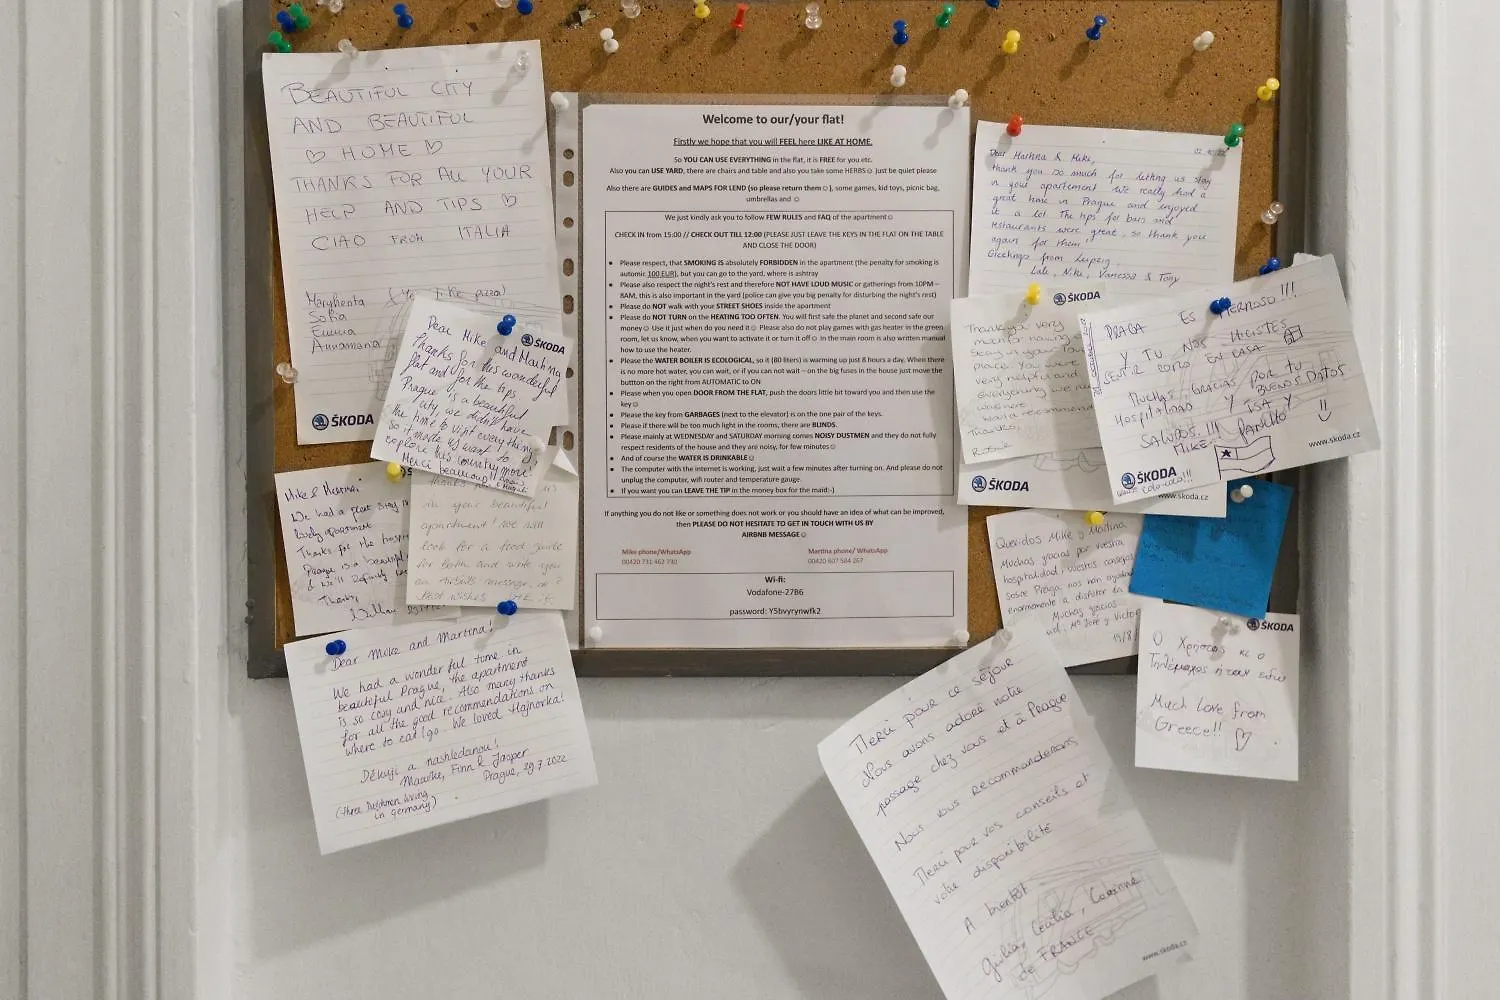 BEAUTIFUL CITY
AND BEAUTIFUL
♡ HOME ♡
THANKS FOR ALL YOUR
HELP AND TIPS ♡
CIAO FROM ITALIA
Margherita (Yes, like pizza!
Sofia
Emma
Annamaria
ŠKODA
Dear Mike and Martina
ŠKODA
Thanks for this wonderful
flat and for the tips
Prague is a beautiful
city, we didn't have
the time to visit everything,
so it made us want to
explore this country more!
Merci beaucoup!
Mike & Martina!
We had a great stay in
lovely apartment
Thanks for the
Prague is a beautiful
& we'll definitely
Thanks
in your beautiful
apartment! We will
look for a food guide
for both and write you
an Airbnb message,
best wishes
Dear Mike and Martina!
We had a wonderful time in
beautiful Prague, the apartment
is so cozy and nice. Also many thanks
for all the good recommendations on
where to eat/go. We loved Hajnovka!
Děkuji a nashledanou!
Maarike, Finn & Jasper
Prague, 29.7.2022
(three Dutchmen living
in Germany)
Welcome to our/your flat!
Firstly we hope that you will FEEL here LIKE AT HOME.
So YOU CAN USE EVERYTHING in the flat, it is FREE for you etc.
Also you can USE YARD, there are chairs and table and also you take some HERBS☺ just be quiet please
Also there are GUIDES and MAPS FOR LEND (so please return them☺), some games, kid toys, picnic bag,
umbrellas and ☺
We just kindly ask you to follow FEW RULES and FAQ of the apartment☺
CHECK IN from 15:00 // CHECK OUT TILL 12:00 (PLEASE JUST LEAVE THE KEYS IN THE FLAT ON THE TABLE
AND CLOSE THE DOOR)
• Please respect, that SMOKING IS absolutely FORBIDDEN in the apartment (the penalty for smoking is
automic 100 EUR), but you can go to the yard, where is ashtray
• Please also respect the night's rest and therefore NOT HAVE LOUD MUSIC or gatherings from 10PM –
8AM, this is also important in the yard (police can give you big penalty for disturbing the night's rest)
• Please do NOT walk with your STREET SHOES inside the apartment
• Please do NOT TURN on the HEATING TOO OFTEN. You will first safe the planet and second safe our
money☺ Use it just when do you need it☺ Please also do not play games with gas heater in the green
room, let us know, when you want to activate it or turn it off☺ In the main room is also written manual
how to use the heater.
• Please the WATER BOILER IS ECOLOGICAL, so it (80 liters) is warming up just 8 hours a day. When there
is no more hot water, you can wait, or if you can not wait – on the big fuses in the house just move the
buttton on the right from AUTOMATIC to ON
• Please when you open DOOR FROM THE FLAT, push the doors little bit toward you and then use the
key☺
• Please the key from GARBAGES (next to the elevator) is on the one pair of the keys.
• Please if there will be too much light in the rooms, there are BLINDS.
• Please mainly at WEDNESDAY and SATURDAY morning comes NOISY DUSTMEN and they do not fully
respect residents of the house and they are noisy, for few minutes☺
• And of course the WATER IS DRINKABLE☺
• The computer with the internet is working, just wait a few minutes after turning on. And please do not
unplug the computer, wifi router and temperature gauge.
• If you want you can LEAVE THE TIP in the money box for the maid:-)
If anything you do not like or something does not work or you should have an idea of what can be improved,
then PLEASE DO NOT HESITATE TO GET IN TOUCH WITH US BY
AIRBNB MESSAGE☺
Mike phone/WhatsApp
00420 731 462 730
Martina phone/ WhatsApp
00420 607 564 267
Wi-fi:
Vodafone-2786
password: Y5bvyrynwfk2
Dear Martina & Mike,
thank you so much for letting us stay
in your apartement. We really had a
great time in Prague and enjoyed
it a lot. The tips for bars and
restaurants were great, so thank you
again for them!
Greetings from Leipzig,
Lale, Nike, Vanessa & Tony
ŠKODA
Thank you very
much for having
stay in your
place. You were
very helpful and
everything we
was here.
Would recommend
Thanks,
ŠKODA
www.skoda.cz
PRAGA ES HERMOSO!!!
Y TU NOS HICISTES
SENTIR COMO EN CASA
MUCHAS GRACIAS POR TU
HOSPITALIDAD Y BUENOS DATOS
SALUDOS!!! ISA Y
MIKE PANCHO
www.skoda.cz
ŠKODA
Queridos Mike y Martina
Muchas gracias por vuestra
hospitalidad, vuestros consejos
sobre Praga nos han ayudado
enormemente a disfrutar la
Muchas gracias
Mª José y Victor
ŠKODA
Ο Χρήστος κι ο
Τηλέμαχος ήταν εδώ
Much Love from
Greece!! ♡
Merci pour ce séjour
Nous avons adoré notre
passage chez vous et à Prague
Nous vous recommanderons
Merci pour vos conseils et
votre disponibilité
A bientôt
Giulia, Cécilia, Corinne
de FRANCE
www.skoda.cz